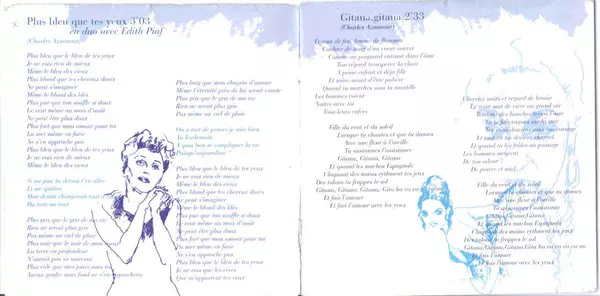 Plus bleu que tes yeux 3'03
en duo avec Edith Piaf
(Charles Aznavour)
Plus bleu que le bleu de tes yeux
Je ne vois rien de mieux
Même le bleu des cieux
Plus blond que tes cheveux dorés
Ne peut s'imaginer
Même le blond des blés
Plus pur que ton souffle si doux
Le vent même au mois d'août
Ne peut être plus doux
Plus fort que mon amour pour toi
La mer même en furie
Ne s'en approche pas
Plus bleu que le bleu de tes yeux
Je ne vois rien de mieux
Même le bleu des cieux
Si un jour tu devais t'en aller
Et me quitter
Mon destin changerait tout à coup
Du tout au tout
Plus gris que le gris de ma vie
Rien ne serait plus gris
Pas même un ciel de pluie
Plus noir que le noir de mon cœur
La terre en profondeur
N'aurait pas sa noirceur
Plus vide que mes jours sans toi
Aucun gouffre sans fond ne s'en approchera
Plus long que mon chagrin d'amour
Même l'éternité près de lui serait courte
Plus gris que le gris de ma vie
Rien ne serait plus gris
Pas même un ciel de pluie
On a tort de penser je sais bien
Au lendemain
A quoi bon se compliquer la vie
Puisqu'aujourd'hui
Plus bleu que le bleu de tes yeux
Je ne vois rien de mieux
Même le bleu des cieux
Plus blond que tes cheveux dorés
Ne peut s'imaginer
Même le blond des blés
Plus pur que ton souffle si doux
Le vent même au mois d'août
Ne peut être plus doux
Plus fort que mon amour pour toi
La mer même en furie
Ne s'en approche pas
Plus bleu que le bleu de tes yeux
Je ne vois que les rêves
Que m'apportent tes yeux
Gitana, gitana 2'33
(Charles Aznavour)
Femme de feu, femme de flamme
Couleur de sang d'un cœur ouvert
Comme un poignard entrant dans l'âme
Ton regard transperce la chair
A peine enfant et déjà fille
Et mère avant d'être pubère
Quand tu marches sous ta mantille
Les hommes voient
Naître avec toi
Tous leurs enfers
Fille du vent et du soleil
Lorsque tu chantes et que tu danses
Avec une fleur à l'oreille
Tu ensorcelles l'assistance
Gitana, Gitana, Gitana
Et quand les muchos Espagnols
Claquant des mains rythment tes jeux
Des talons tu frappes le sol
Gitana, Gitana, Gitana
Et fais l'amour
Et fais l'amour avec les yeux
Cheveux noirs et regard de braise
Le teint mat de vivre au grand air
De ton odeur
De poivre et miel
Fille du vent et du soleil
Lorsque tu chantes et que tu danses
Avec une fleur à l'oreille
Tu ensorcelles l'assistance
Gitana, Gitana, Gitana
Et quand les muchos Espagnols
Claquant des mains rythment tes jeux
Des talons tu frappes le sol
Et fais l'amour
Et fais l'amour avec les yeux